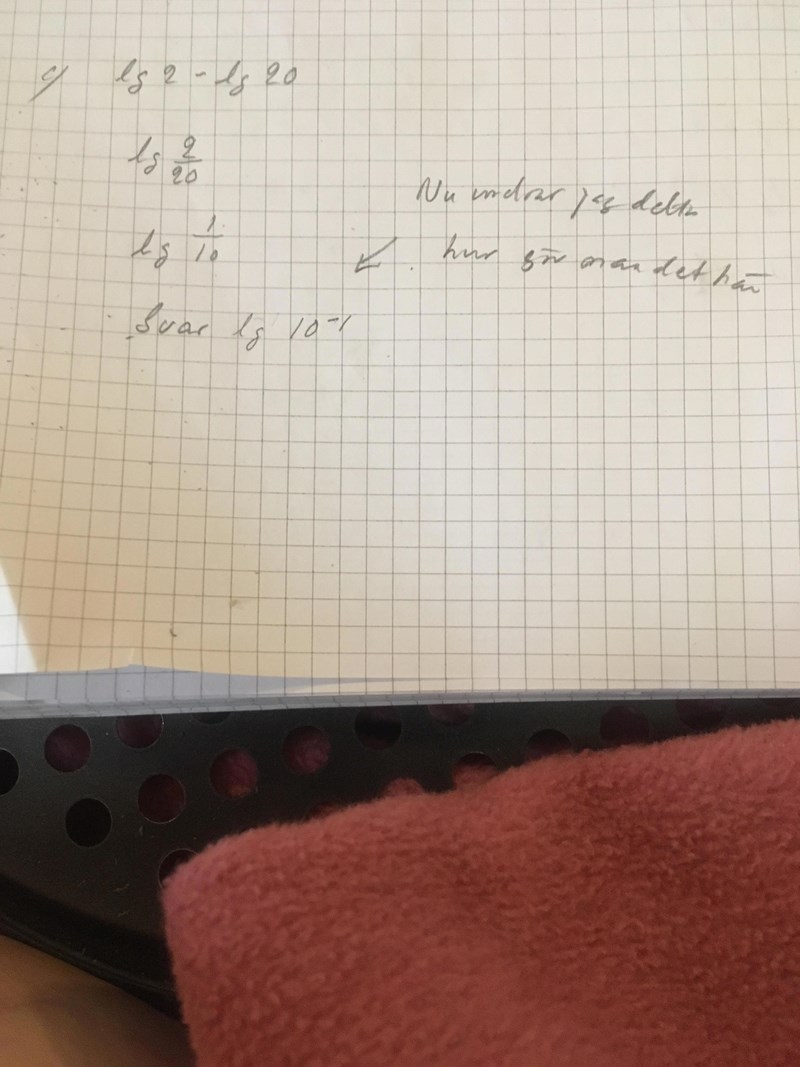 c) lg 2 - lg 20
lg 2/20
Nu undrar jag detta
lg 1/10
hur gör man det här
Svar lg 10⁻¹